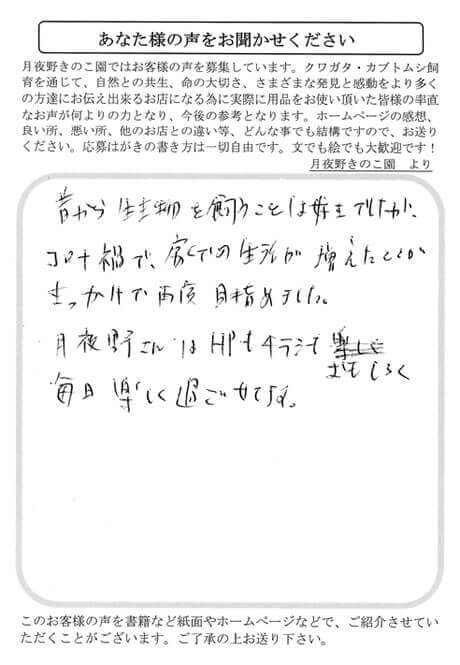 あなた様の声をお聞かせください
月夜野きのこ園ではお客様の声を募集しています。クワガタ・カブトムシ飼
育を通じて、自然との共生、命の大切さ、さまざまな発見と感動をより多く
の方達にお伝え出来るお店になる為に実際に用品をお使い頂いた皆様の率直
なお声が何よりの力となり、今後の参考となります。ホームページの感想、
良い所、悪い所、他のお店との違い等、どんな事でも結構ですので、お送り
ください。応募はがきの書き方は一切自由です。文でも絵でも大歓迎です！
月夜野きのこ園　より
昔から生き物を飼うことは好きでしたが、
コロナ禍で、家での生活が増えたことが
きっかけで再度目指めました。
月夜野さんはHPもチラシも
おもしろく
毎日楽しく過ごせてます。
このお客様の声を書籍など紙面やホームページなどで、ご紹介させてい
ただくことがございます。ご了承の上お送り下さい。